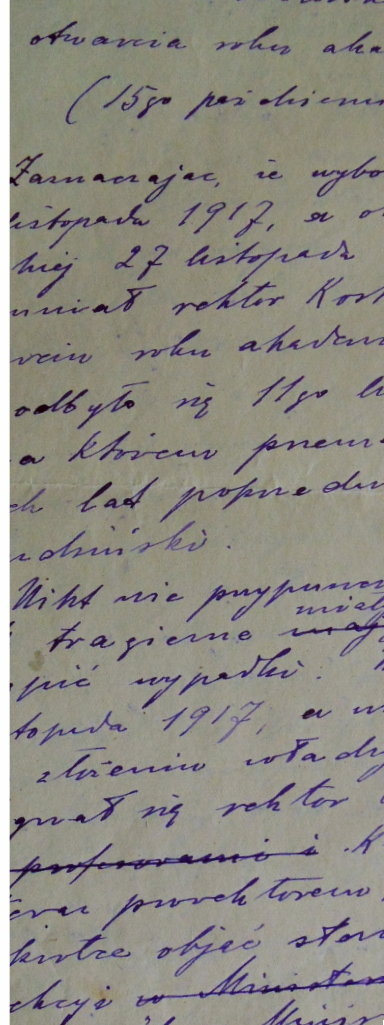 otwarcia roku aka
(15go październi
Zaznaczając, że wybo
listopada 1917, a o
kiej 27 listopada
umiał rektor Kost
rciu roku akadem
odbyło się 11go li
a którem przem
ch lat poprzedn
udziński.
Nikt nie przypuszcz
miały
tragiczne maj
pić wypadki.
topada 1917, a w
złożeniu władzy
gnał się rektor
profesorami i K
eraz prorektorem
krótce objąć ster
ekcyi w Minister
Minis